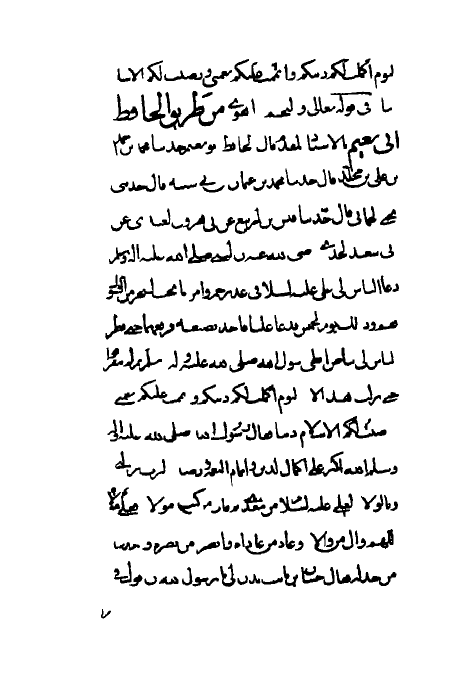 ليوم اكملت لكم دينكم واتممت عليكم نعمتي ورضيت لكم الاسلا
في قوله تعالى من طريق الحافظ
ابي نعيم بالاسناد المقدم قال الحافظ ابو نعيم حدثنا محمد بن احمد
بن علي بن مخلد قال حدثنا محمد بن عثمان بن ابي شيبه قال حدثني
يحيى الحماني قال حدثنا قيس بن الربيع عن ابي هرون العبدي عن
ابي سعيد الخدري رضي الله عنه ان النبي صلى الله عليه واله وسلم
دعا الناس الى علي عليه السلام في غدير خم وامر بما تحت الشجر من الشوك
يوم الخميس فدعا عليا فاخذ بضبعيه فرفعهما حتى نظر
الناس الى بياض ابطي رسول الله صلى الله عليه واله وسلم
حتى نزلت هذه الايه اليوم اكملت لكم دينكم واتممت عليكم نعمتي
ورضيت لكم الاسلام دينا فقال رسول الله صلى الله عليه واله
وسلم الله اكبر على اكمال الدين واتمام النعمه ورضا الرب برسالتي
وبالولايه لعلي عليه السلام من بعدي ثم قال من كنت مولاه فعلي مولاه
اللهم وال من والاه وعاد من عاداه وانصر من نصره واخذل
من خذله فقال حسان بن ثابت ائذن لي يا رسول الله ان اقول في